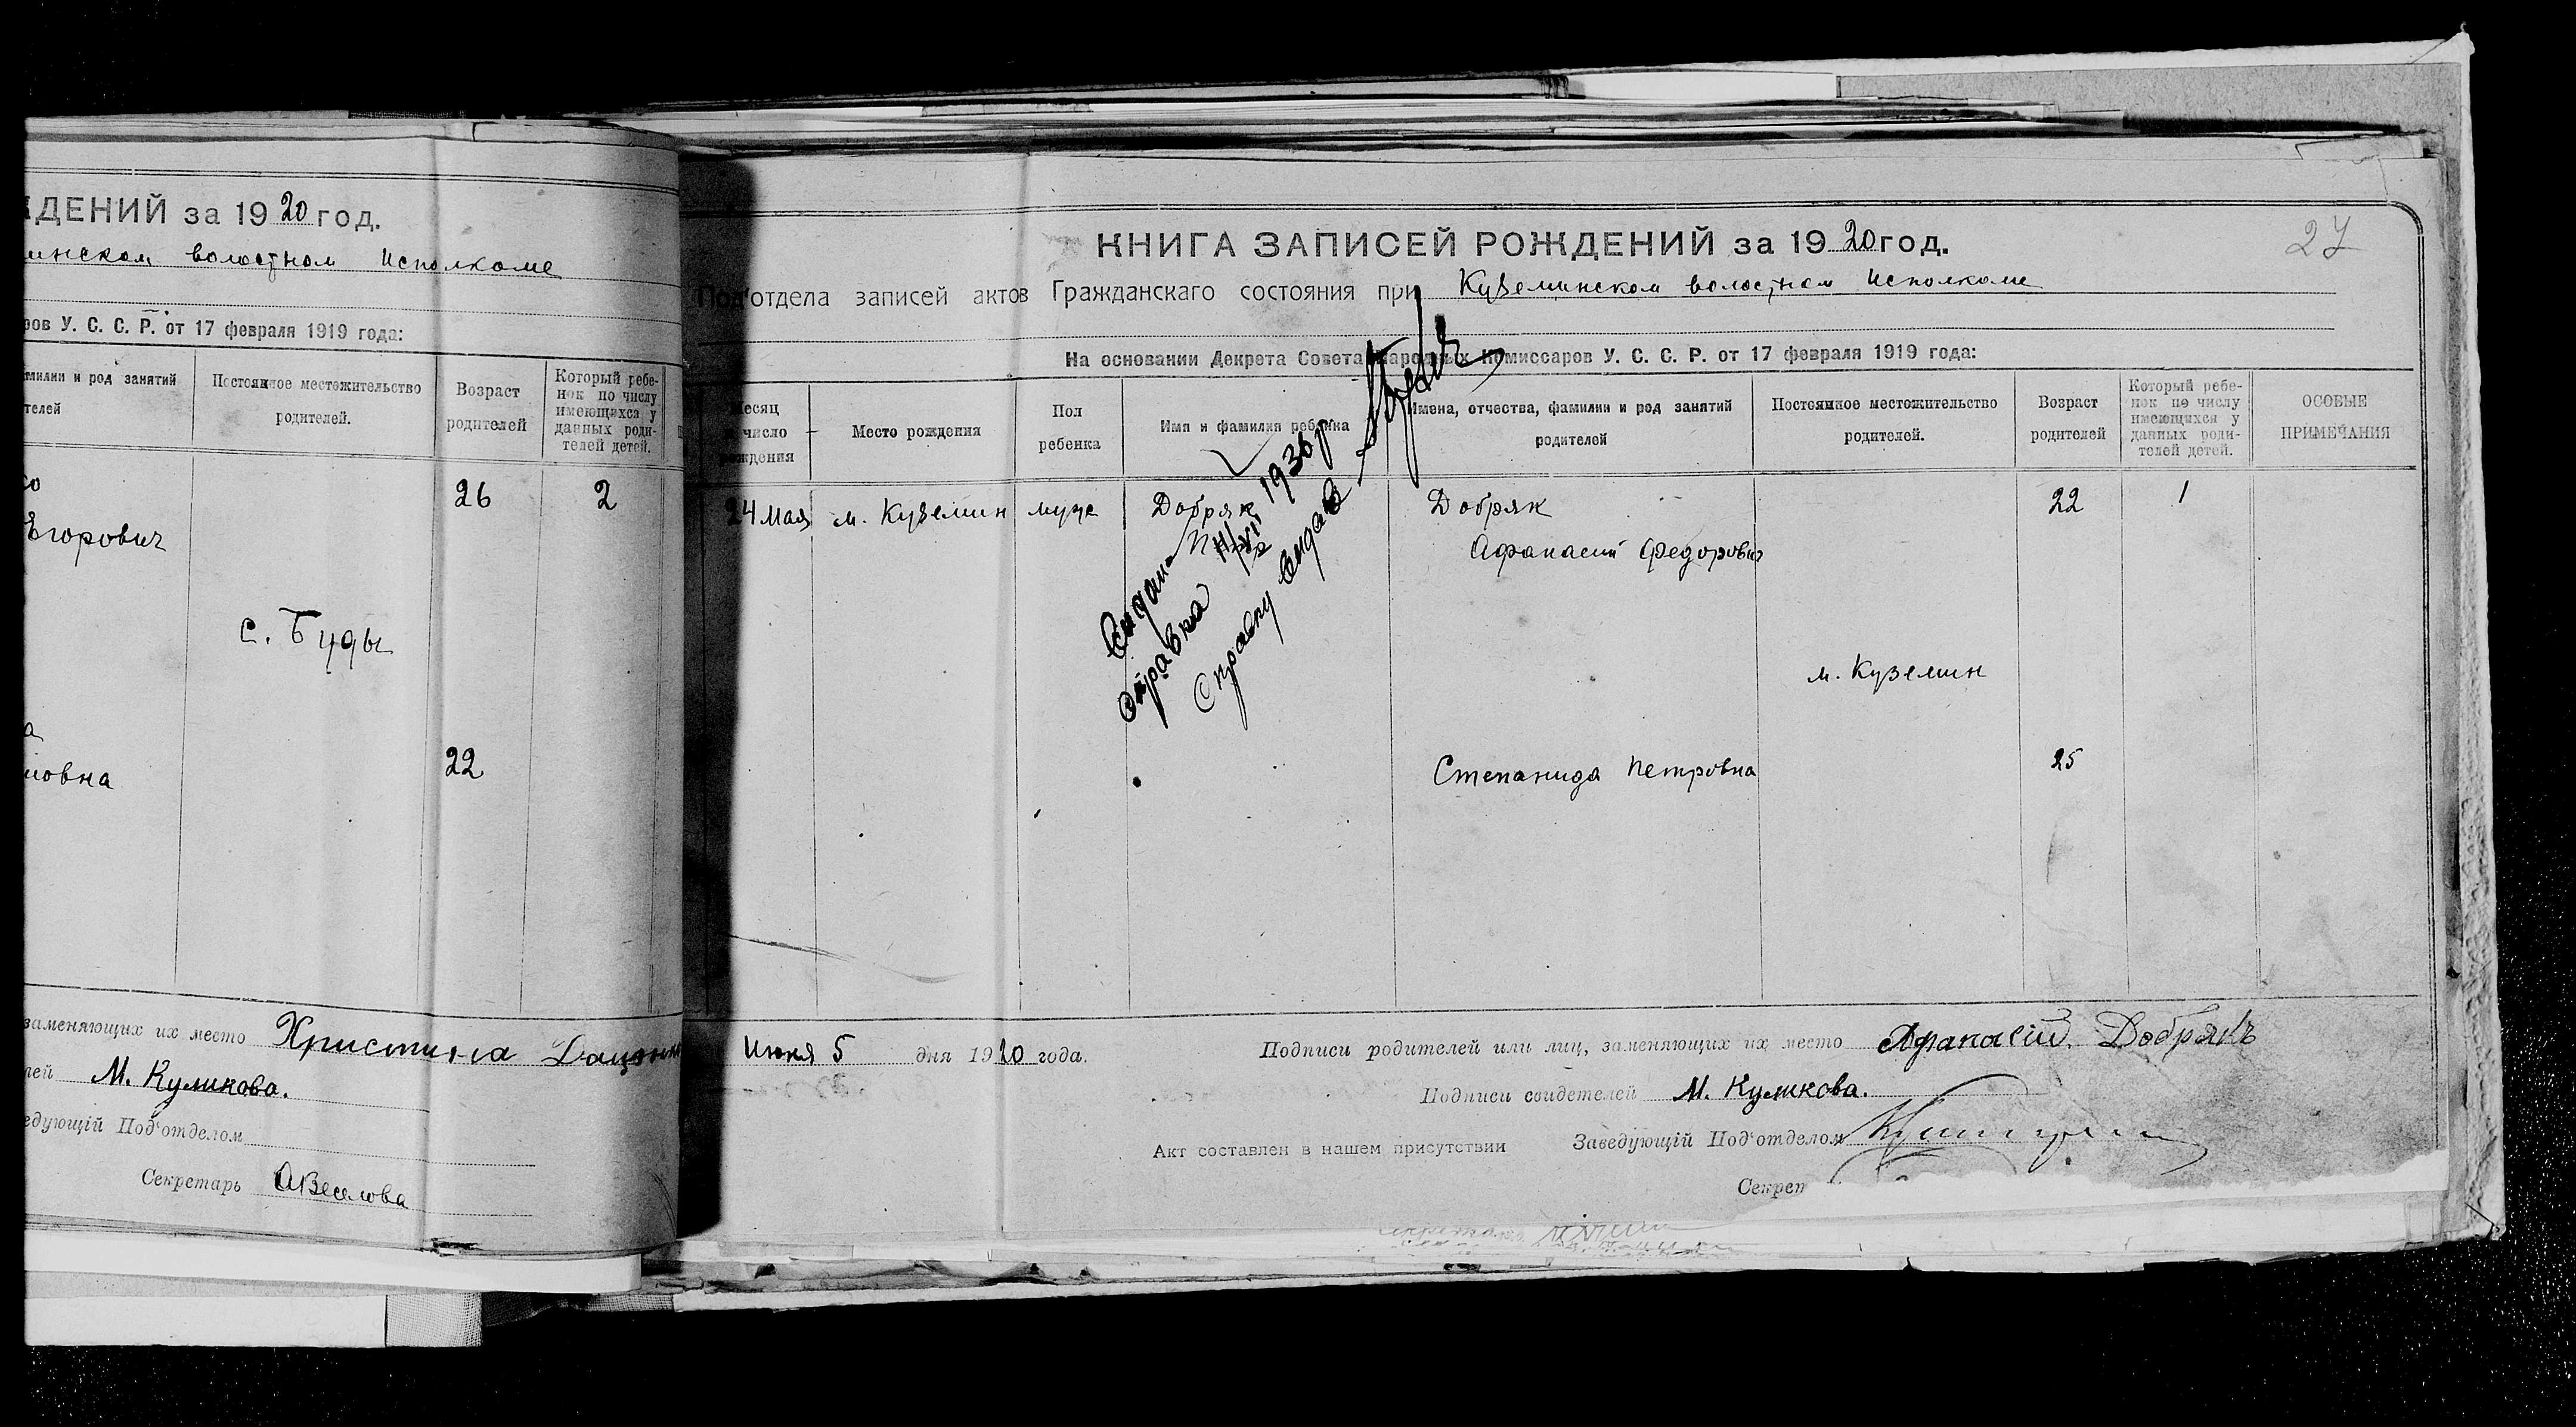 ЖДЕНИЙ за 1920 год.
инском волостном Исполкоме
ров У. С. С. Р. от 17 февраля 1919 года:
милии и род занятий
телей
Постоянное местожительство
родителей.
Возраст
родителей
Который ребе-
нок по числу
имеющихся у
данных роди-
телей детей.
Егорович
26
2
с. Буды
22
мовна
заменяющих их место Христина
лей М. Куликова.
едующій Под'отделом
Секретарь АВеселова
27
КНИГА ЗАПИСЕЙ РОЖДЕНИЙ за 1920 год.
Под'отдела записей актов Гражданскаго состояния при Куземинском волостном Исполкоме
На основании Декрета Совета Народных Комиссаров У. С. С. Р. от 17 февраля 1919 года:
Месяц
и число
рождения
Место рождения
Пол
ребенка
Имя и фамилия ребенка
Имена, отчества, фамилии и род занятий
родителей
Постоянное местожительство
родителей.
Возраст
родителей
Который ребе-
нок по числу
имеющихся у
данных роди-
телей детей.
ОСОБЫЕ
ПРИМЕЧАНИЯ
24 Мая
м. Куземин
муже
Добряк
Видана
справка
1936 р
Справку видав
Добряк
Афанасий Федорович
м. Куземин
22
1
Степанида Петровна
25
Июня 5 дня 1920 года.
Подписи родителей или лиц, заменяющих их место Афанасій Добрякъ
Подписи свидетелей М. Куликова.
Акт составлен в нашем присутствии
Заведующій Под'отделом
Секрет